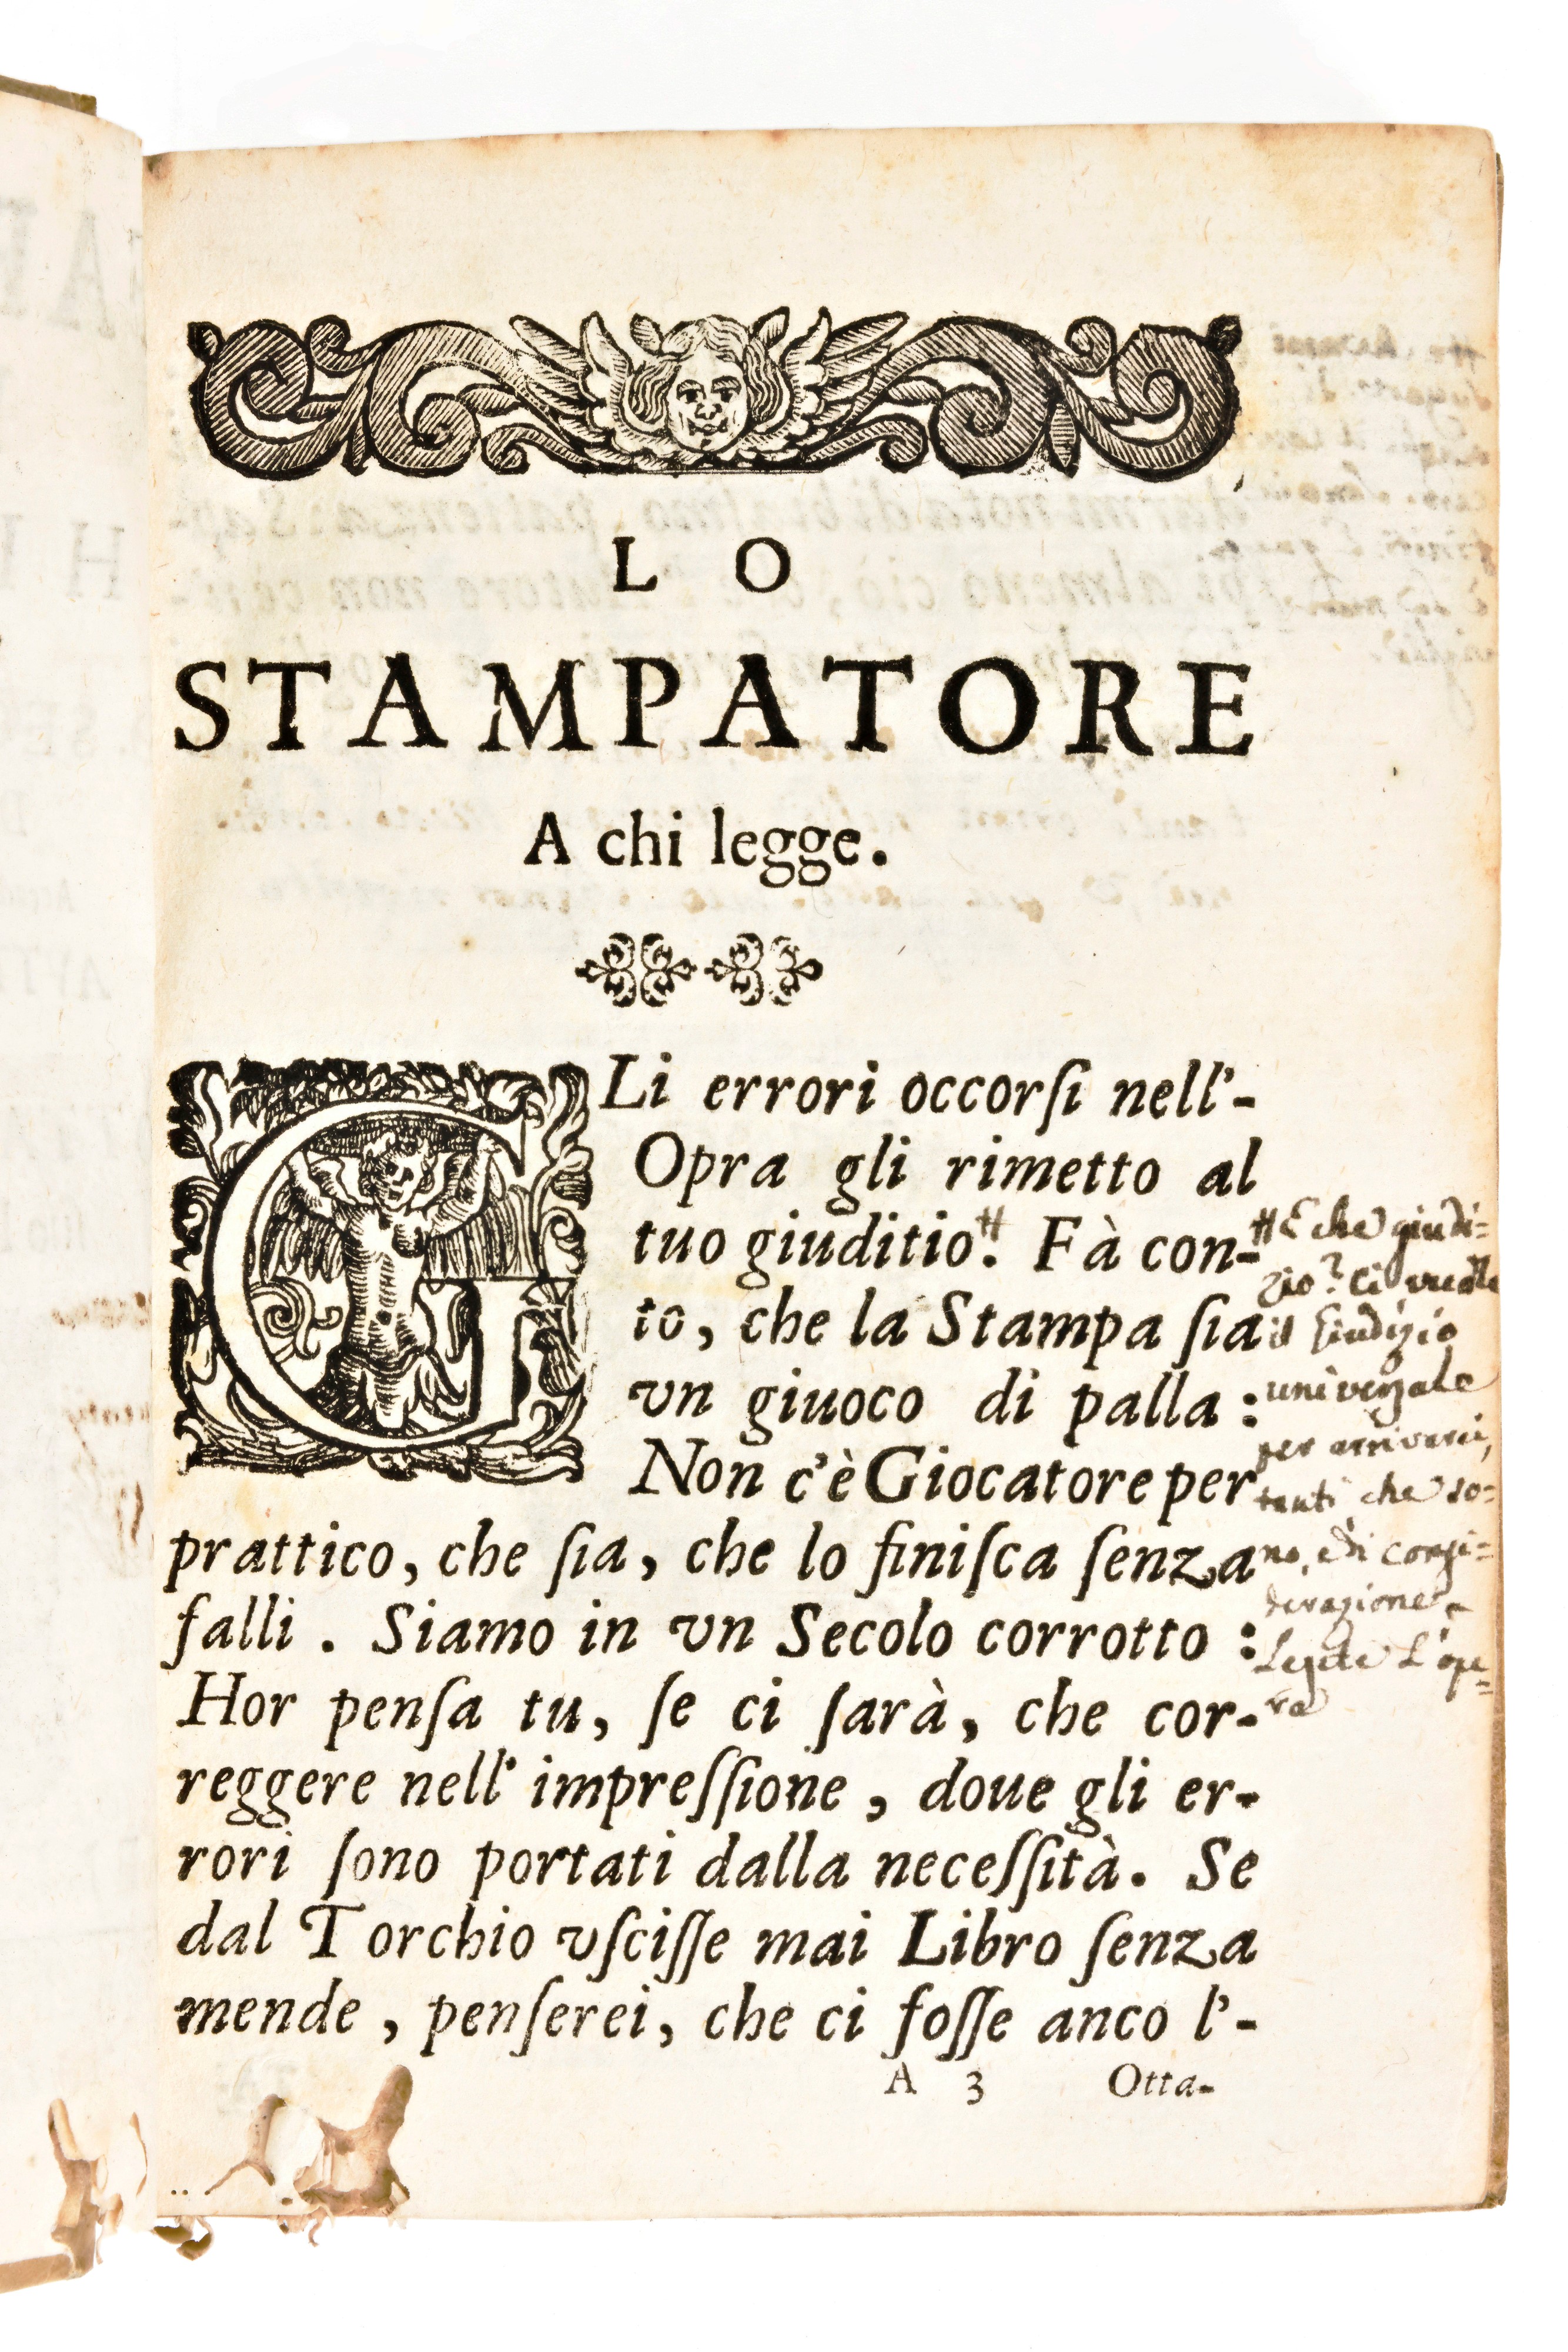 LO
STAMPATORE
A chi legge.
GLi errori occorſi nell'-
Opra gli rimetto al
tuo giuditio. Fà con-
to, che la Stampa ſia
vn giuoco di palla:
Non c'è Giocatore per
prattico, che ſia, che lo finiſca ſenza
falli. Siamo in vn Secolo corrotto:
Hor penſa tu, ſe ci ſarà, che cor-
reggere nell' impreſſione, doue gli er-
rori ſono portati dalla neceſſità. Se
dal Torchio vſciſſe mai Libro ſenza
mende, penſerei, che ci foſſe anco l'-
A 3 Otta-
# E che giudi=
zio? Ci vuole
il Giudizio
univerzale
per arrivarci,
tanti che so=
no, e di consi=
derazione.
Legete l'ope=
ra